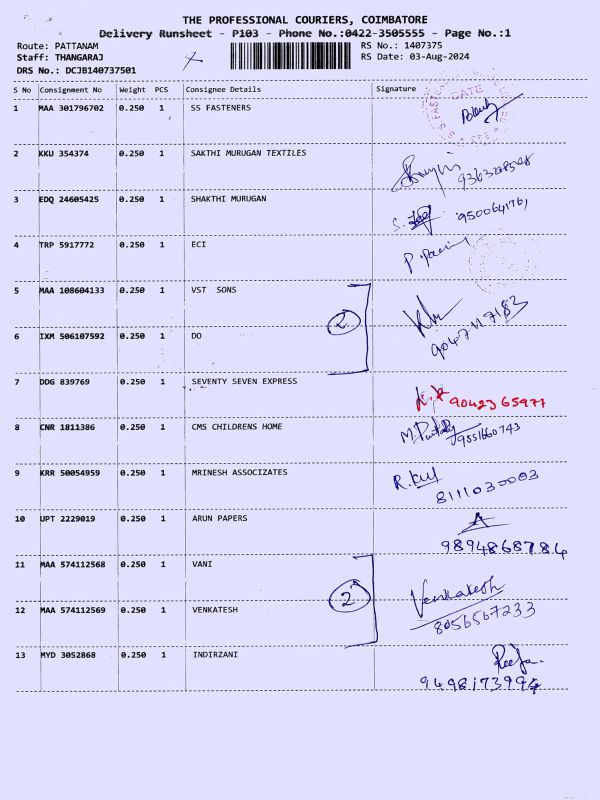 THE PROFESSIONAL COURIERS, COIMBATORE
Delivery Runsheet - P103 - Phone No.:0422-3505555 - Page No.:1
Route: PATTANAM RS No.: 1407375
Staff: THANGARAJ RS Date: 03-Aug-2024
DRS No.: DCJB140737501
S No Consignment No Weight PCS Consignee Details Signature
1 MAA 301796702 0.250 1 SS FASTENERS
DATE
2 KKU 354374 0.250 1 SAKTHI MURUGAN TEXTILES
3 EDQ 24605425 0.250 1 SHAKTHI MURUGAN
9500641761
4 TRP 5917772 0.250 1 ECI
5 MAA 108604133 0.250 1 VST SONS
2
6 IXM 506107592 0.250 1 DO
9047117183
7 DDG 839769 0.250 1 SEVENTY SEVEN EXPRESS
9042365977
8 CNR 1811386 0.250 1 CMS CHILDRENS HOME
9551660743
9 KRR 50054959 0.250 1 MRINESH ASSOCIZATES
8111030003
10 UPT 2229019 0.250 1 ARUN PAPERS
9894868784
11 MAA 574112568 0.250 1 VANI
2 Venkatesh
12 MAA 574112569 0.250 1 VENKATESH
8056567233
13 MYD 3052868 0.250 1 INDIRZANI
9498173994